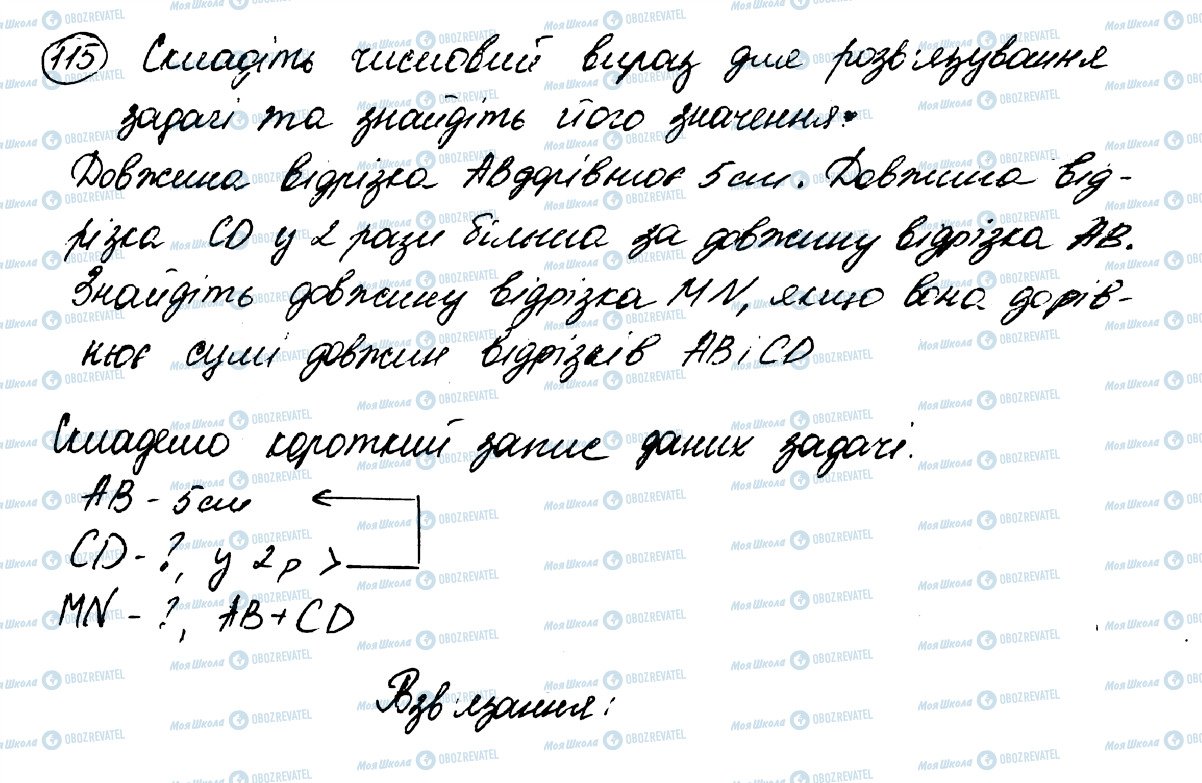 115 Складіть числовий вираз для розв'язування
задачі та знайдіть його значення:
Довжина відрізка AB дорівнює 5 см. Довжина від-
різка CD у 2 рази більша за довжину відрізка AB.
Знайдіть довжину відрізка MN, якщо вона дорів-
нює сумі довжин відрізків AB і CD
Складемо короткий запис даних задачі.
AB - 5 см
CD - ?, у 2 р >
MN - ?, AB + CD
Розв'язання:
Моя Школа OBOZREVATEL